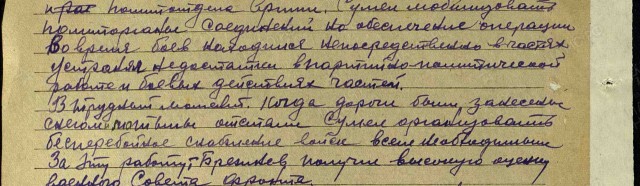 политотдела Армии. Сумел мобилизовать
политорганы соединений на обеспечение операции
Во время боев находился непосредственно в частях
устранял недостатки в партийно-политической
работе и боевых действиях частей.
В трудный момент когда дороги были занесены
снегом тылы отстали сумел организовать
бесперебойное снабжение войск всем необходимым
За эту работу т. Брежнев получил высокую оценку
Военного Совета фронта.